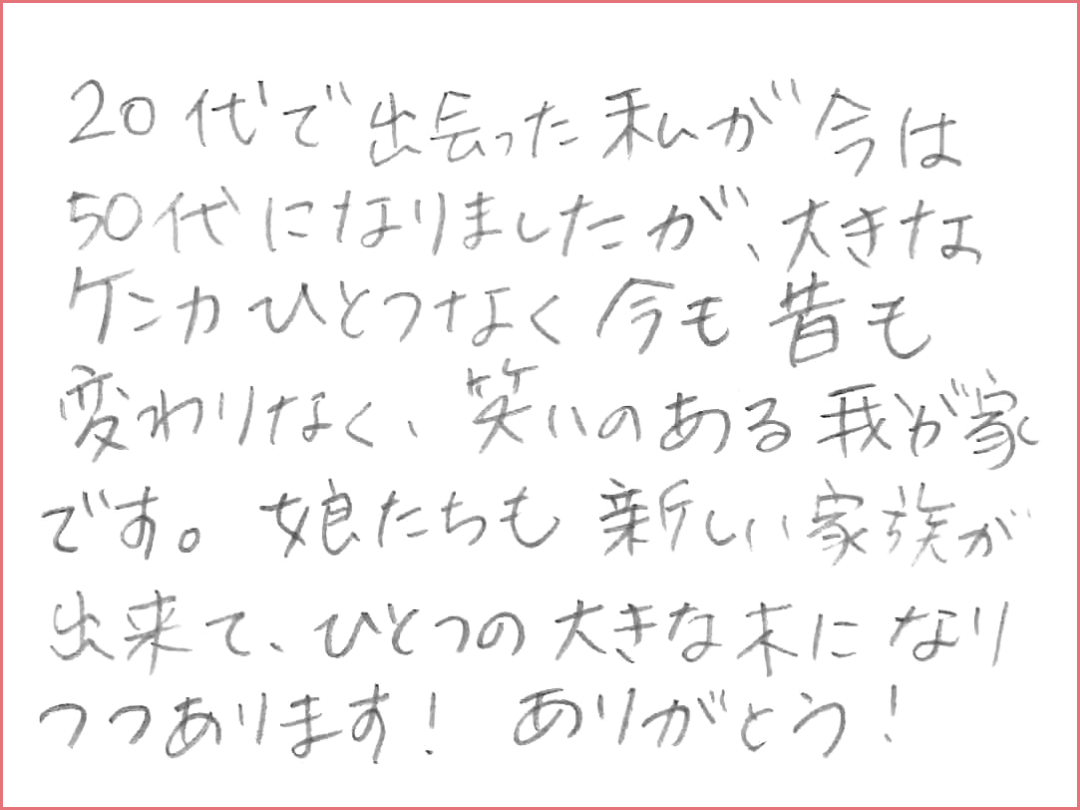 20代で出会った私が今は
50代になりましたが、大きな
ケンカひとつなく今も昔も
変わりなく、笑いのある我が家
です。娘たちも新しい家族が
出来て、ひとつの大きな木になり
つつあります！ ありがとう！